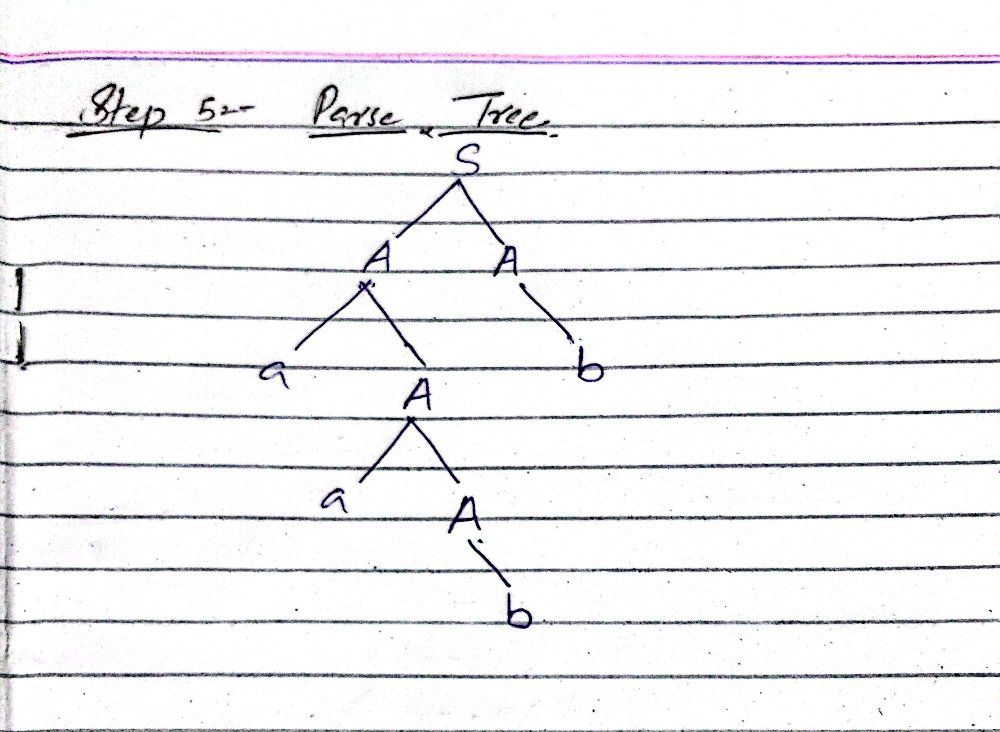 Step 5:- Parse Tree.
S
A A
a b
A
a A
b